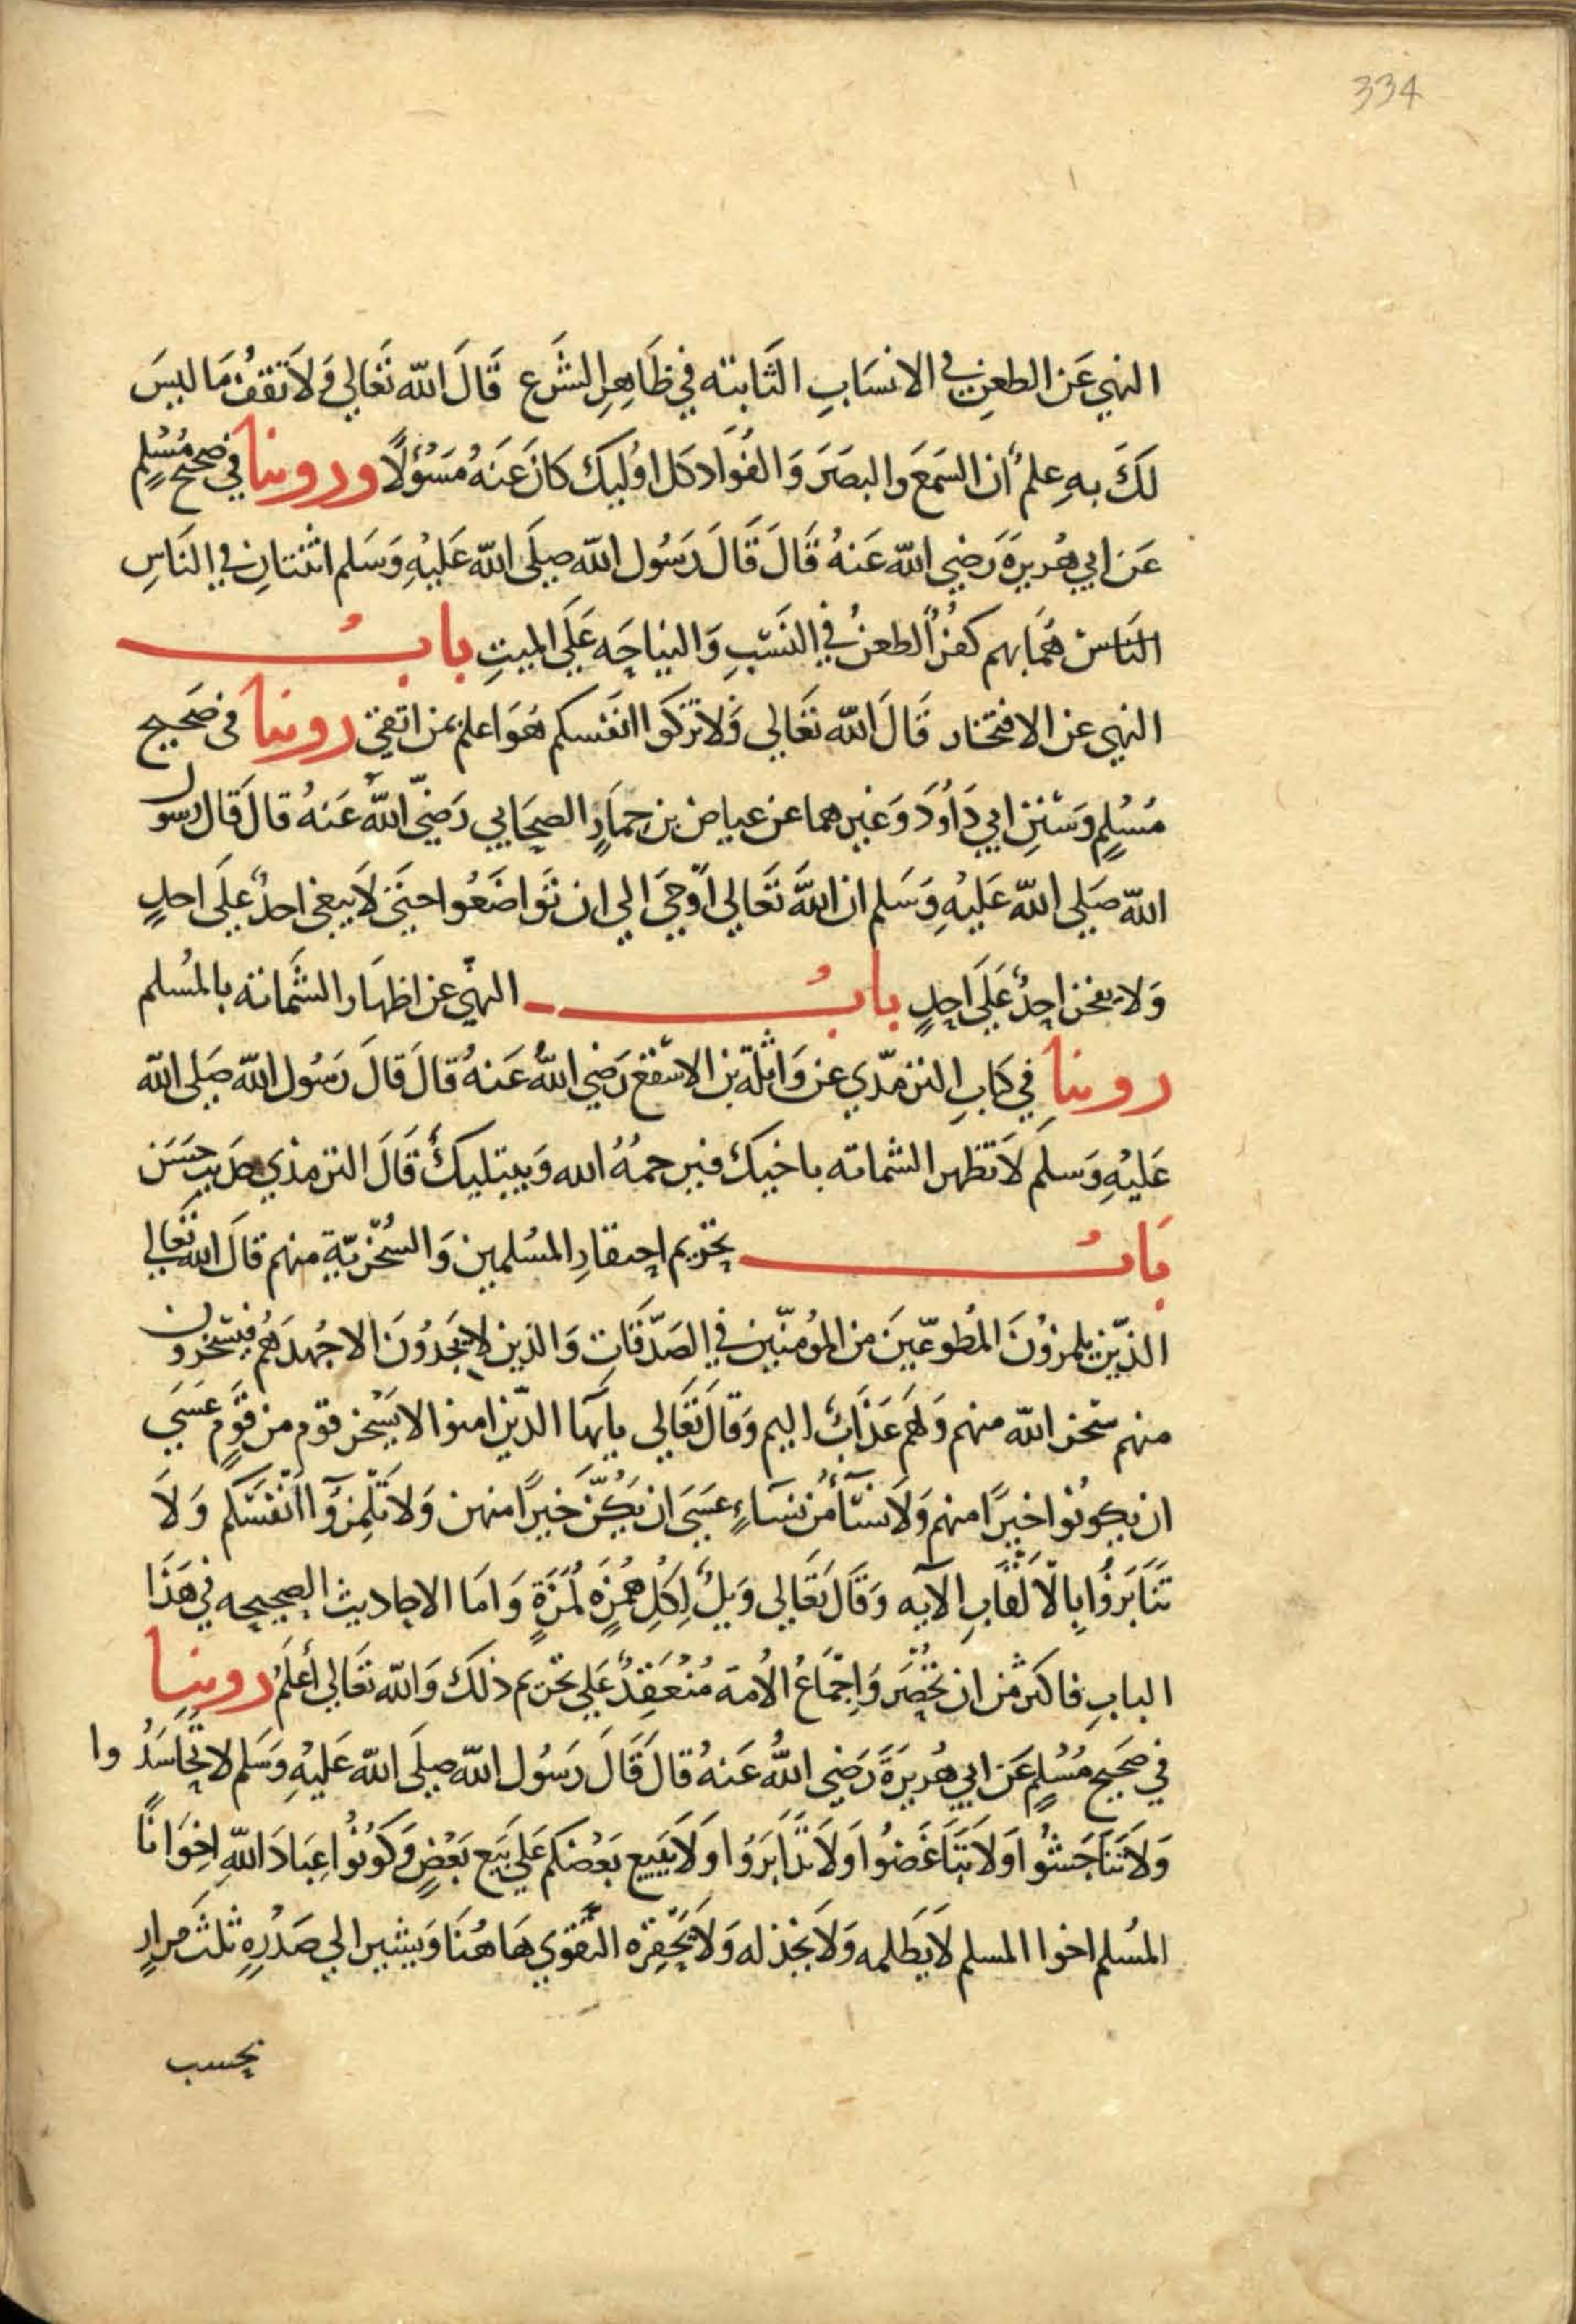 334
النهي عَن الطعنِ في الانسَابِ الثَابتته في ظَاهِرِ الشَرع قَالَ الله تَعَالي وَلاَ تَقفُ مَا ليسَ
لَكَ بهِ علمٌ ان السَمعَ والبصَرَ وَالفُوَادَ كل اوُليِكَ كانَ عَنهُ مَسؤُلًا وروينا في صحيح مُسْلِمٍ
عَن ابي هُريرةَ رَضي الله عَنهُ قَالَ قَالَ رَسُول الله صلَى الله عَليْهِ وَسَلم اثنتانِ في النَاسِ
النَاس هُمَا بهم كفرٌ الطعنُ في النَسَبِ وَالنياحَه عَلَى الميتِ بابُ
النهي عن الافتخار قَالَ الله تعَالي فَلا تزكَوا انفسكم هُوَ اعلم بمن اتقي روينا في صَحيح
مُسْلِمٍ وَسُننِ ابي دَاوُدَ وَغيرهما عن عياض بن حمَارٍ الصحَابي رَضيَ اللهُ عَنهُ قالَ قال رسول
الله صَلى الله عَليْهِ وَسَلم ان اللهَ تَعَالي اوْحيَ الي ان تَوَاضَعُوا حتيَ لاَ يبغي احدٌ علَى احدٍ
وَلا يفخر احدٌ عَلَى احدٍ بابُ النهي عن اظهَار الشَماتة بالمُسلم
روينا في كتابِ الترمذي عن وَاثلة بن الاسقع رَضي اللهُ عَنهُ قالَ قالَ رَسُول الله صَلى الله
عَليْهِ وَسلم لاَ تظهر الشماته باخيك فيرحمُهُ الله وَيبتليكَ قَالَ الترمذي حديث حسَن
بَابُ تحريم احتقارِ المسُلمين وَالسُخْريّةِ منهم قالَ الله تعَالي
الذّين يلمزوُنَ المُطوعّينَ من المُومنّين في الصَدَقَاتِ وَالذين لا يجَدُونَ الا جُهدَهُم فيسخرون
منهم سَخر الله منهم وَلهُم عَذابٌ اليم وَقالَ تعَالي يايهَا الذّين امنوا لا يَسْخر قوم من قَومٍ عَسَي
ان يكونُوا خيرًا منهم وَلاَ نسَآءٌ من نسَاءٍ عسَيَ ان يكُنَّ خيرًا منهن وَلا تَلمِزوُآ اَنفسَكم وَلاَ
تنَابَزوُا بِالاَلقَابِ الآيه وَقَالَ تَعَالي وَيلٌ لِكلِ همُزةٍ لمُزَةٍ وَامَا الاحاديث الصحيحه في هَذَا
البابِ فاكثر من ان تحْصَر وَاِجْماَعُ الأمة مُنعَقِدٌ عَلَى تحريم ذلكَ وَالله تعَالي أعلَمُ روينا
في صَحيحِ مُسْلمٍ عَن ابي هُريرَةَ رَضي اللهُ عَنهُ قالَ قَالَ رَسُول الله صلَى الله عَليْهِ وَسَلم لا تحَاسَدُوا
وَلاَ تَنَاجَشوُا وَلاَ تبَاغَضُوا وَلاَ تدَابَرَوُا وَلاَ يَبيع بَعْضكم عَلَى بَيَعِ بَعْضٍ وَكوُنوُا عِبَادَ اللهِ اِخوَانًا
المُسلم اخوا المسلم لاَ يظلمه وَلاَ يخذله وَلاَ يحَقره التقوي هَاهُنَا وَيشير الي صَدْرِهِ ثلثَ مرارٍ
بحسب